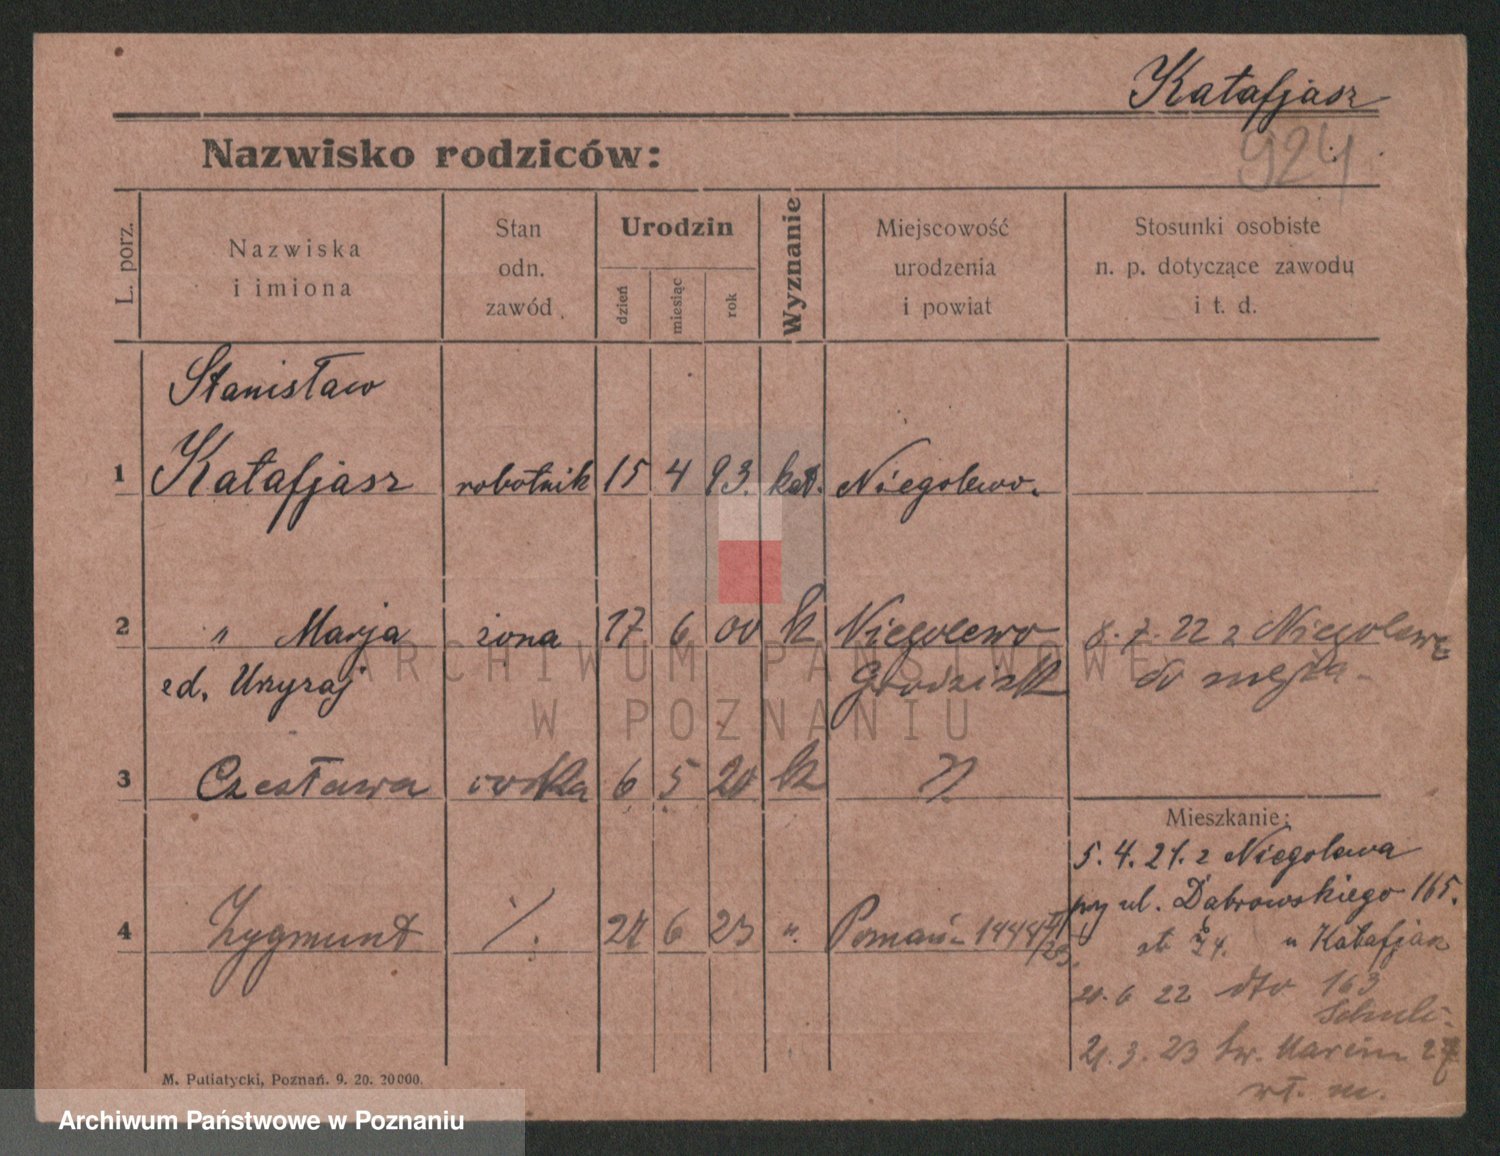 Katafjasz
924
Nazwisko rodziców:
L. porz.
Nazwiska
i imiona
Stan
odn.
zawód
Urodzin
dzień
miesiąc
rok
Wyznanie
Miejscowość
urodzenia
i powiat
Stosunki osobiste
n. p. dotyczące zawodu
i t. d.
Stanisław
1 Katafjasz robotnik 15 4 93. kat. Niegolewo.
2 " Marja żona 17 6 00 k Niegolewo 8.7.22 z Niegolewa
Grodzisk do męża
3 Czesława córka 6 5 20 k
4 Zygmunt 6 23 ". Poznań
Mieszkanie:
5.4.21. z Niegolewa
przy ul. Dąbrowskiego 165.
u Katafjasz
20.6 22 dto 163
21.3.23 Św. Marcin 27
wł. m.
M. Putiatycki, Poznań. 9. 20. 20000.
ARCHIWUM PAŃSTWOWE
W POZNANIU
Archiwum Państwowe w Poznaniu